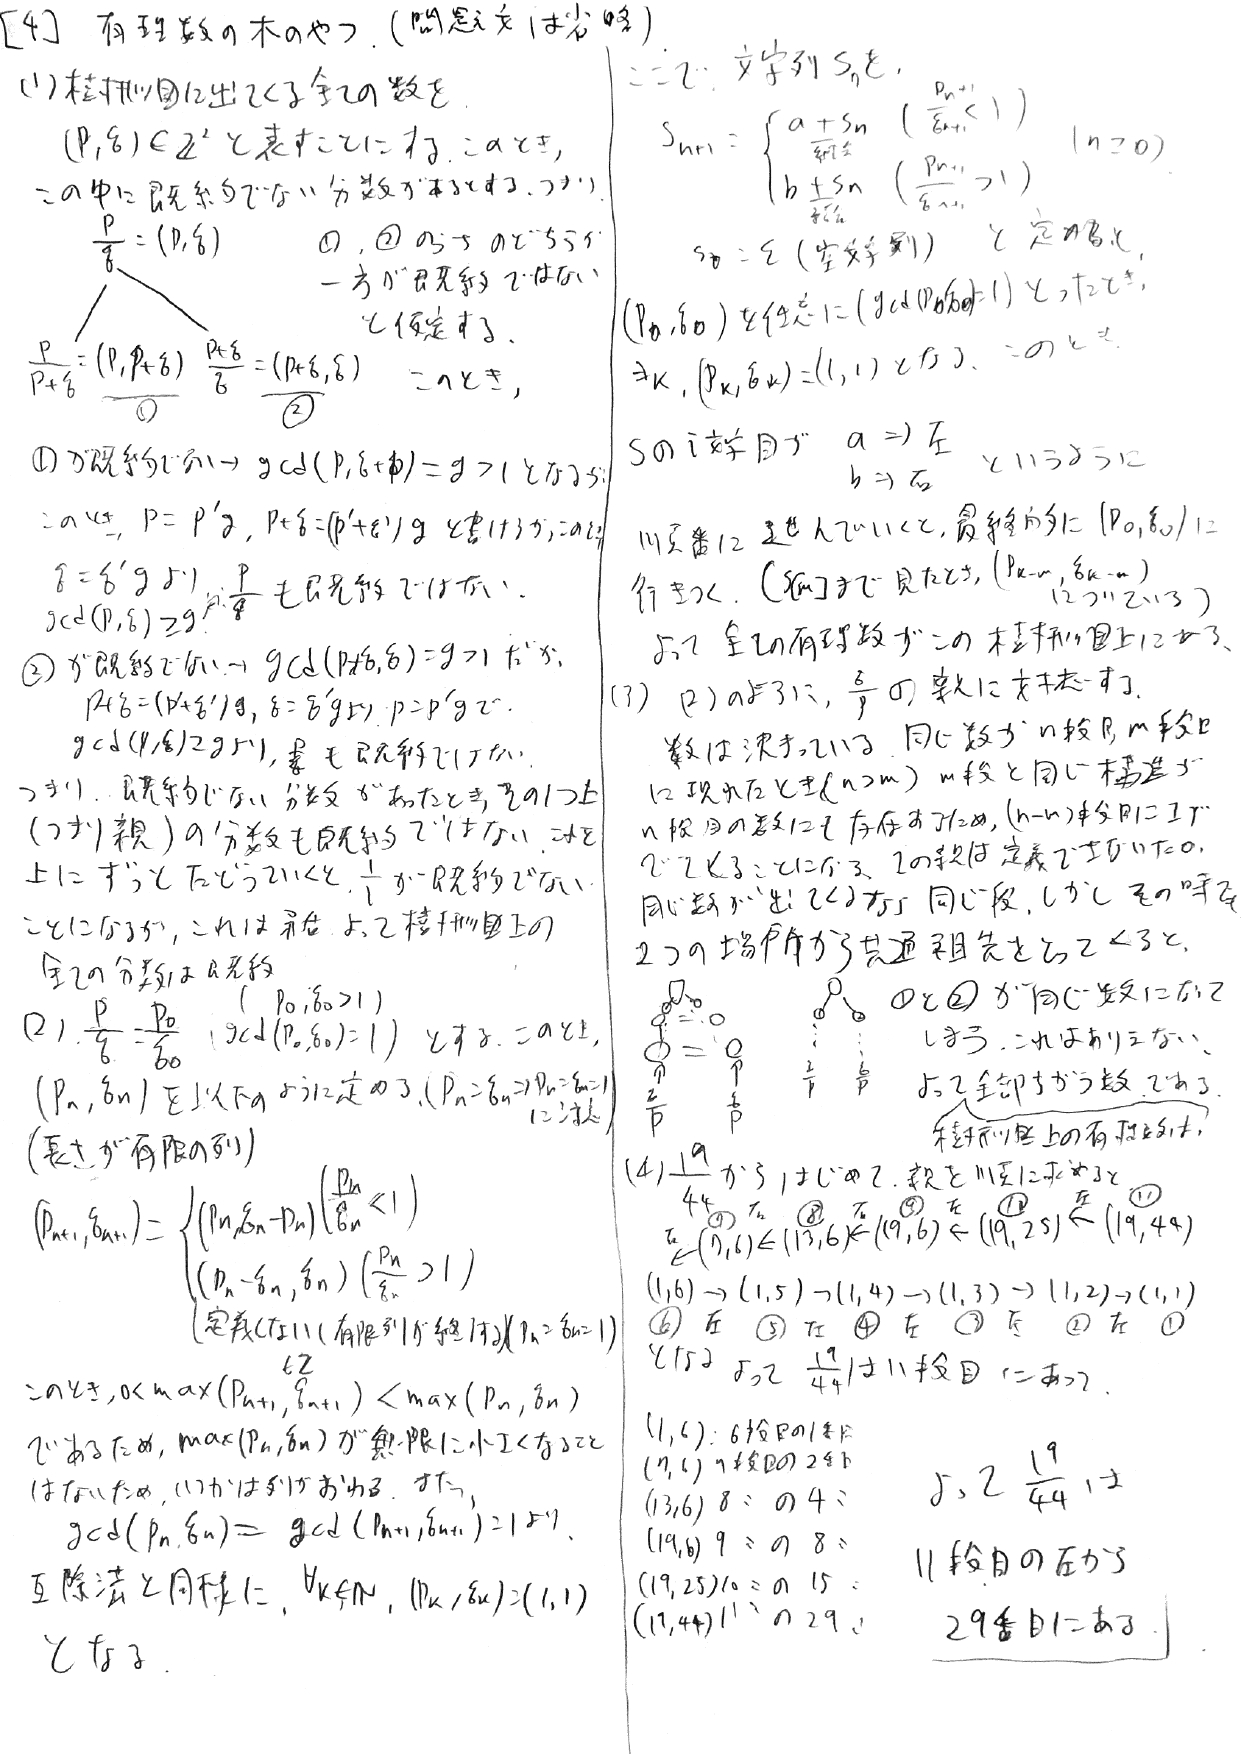 [4] 有理数の木のやつ.(問題文は省略)
(1) 樹形図に出てくる全ての数を
(p,q)∈Z² と表すことにする.このとき,
この中に既約でない分数があるとする.つまり
p/q = (p,q)　①,②のうちのどちらか
一方が既約ではない
と仮定する.
p/(p+q) = (p,p+q)　(p+q)/q = (p+q,q)　このとき,
①　②
①が既約でない→ gcd(p,q+p)=g>1となるが
このとき, p=p'g, p+q=(p'+q')g と書けるが,このとき
q=q'gより, p/q も既約ではない.
gcd(p,q)≧g
②が既約でない→ gcd(p+q,q)=g>1だが,
p+q=(p'+q')g, q=q'gより p=p'gで.
gcd(p,q)≧gより, p/q も既約ではない.
つまり.既約じない分数があったとき,その1つ上
(つまり親)の分数も既約ではない.これを
上にずっとたどっていくと, 1/1 が既約でない
ことになるが,これは矛盾.よって樹形図上の
全ての分数は既約
(2). p/q = p₀/q₀ (p₀,q₀>1) (gcd(p₀,q₀)=1) とする.このとき,
(pₙ,qₙ)を以下のように定める.(pₙ=qₙ⇒pₙ=qₙ=1に注意)
(長さが有限の列)
(pₙ₊₁,qₙ₊₁)= { (pₙ,qₙ-pₙ) (pₙ/qₙ<1)
(pₙ-qₙ,qₙ) (pₙ/qₙ>1)
定義しない(有限列が終了する)(pₙ=qₙ=1)
∈Z
このとき,0<max(pₙ₊₁,qₙ₊₁)<max(pₙ,qₙ)
であるため, max(pₙ,qₙ)が無限に小さくなること
はないため,いつかは列がおわる.また,
gcd(pₙ,qₙ)=gcd(pₙ₊₁,qₙ₊₁)=1より.
互除法と同様に, ∀k∈N, (pₖ,qₖ)=(1,1)
となる.
ここで,文字列Sₙを,
Sₙ₊₁ = { a + Sₙ (pₙ₊₁/qₙ₊₁<1)
結合
b + Sₙ (pₙ₊₁/qₙ₊₁>1)　(n≧0)
結合
S₀=ε(空文字列) と定めると,
(p₀,q₀)を任意に(gcd(p₀,q₀)=1)とったとき,
∃k, (pₖ,qₖ)=(1,1)となる.このとき
Sのi文字目が a⇒左
b⇒右 というように
順番に進んでいくと,最終的に(p₀,q₀)に
行きつく.(S[m]まで見たとき, (pₖ₋ₘ,qₖ₋ₘ)
についている)
よって全ての有理数がこの樹形図上にある.
(3) (2)のように, q/p の親に対応する.
数は決まっている.同じ数がn段目,m段目
に現れたとき(n>m) m段と同じ構造が
n段目の数にも存在するため,(n-m)段目に1が
でてくることになる.この親は定義できないため.
同じ数が出てくるなら同じ段.しかしその時も
2つの場所から共通祖先をとってくると,
①と②が同じ数になって
しまう.これはありえない.
よって全部ちがう数である.
樹形図上の有理数は,
(4) 19/44 からはじめて.親を順に求めると
⑦ 右 ⑧ 右 ⑨ 左 ⑩ 左 ⑪
右← (7,6)←(13,6)←(19,6)←(19,25)←(19,44)
(1,6)→(1,5)→(1,4)→(1,3)→(1,2)→(1,1)
⑥ 左 ⑤ 左 ④ 左 ③ 左 ② 左 ①
となる よって 19/44 は11段目にあって.
(1,6): 6段目の1番目
(7,6) 7段目の2番目
(13,6) 8 〃 の 4 〃
(19,6) 9 〃 の 8 〃
(19,25) 10 〃 の 15 〃
(19,44) 11 〃 の 29 〃
よって 19/44 は
11段目の左から
29番目にある.